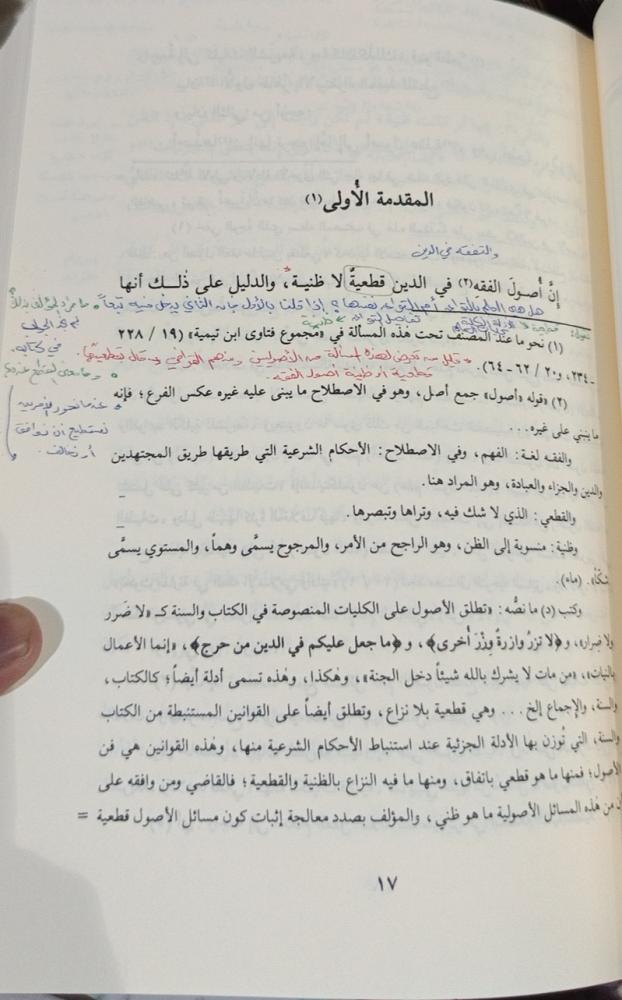 المقدمة الأولى(١)
والتفقه في الدين
إنَّ أُصولَ الفقه(٢) في الدين قطعيةٌ لا ظنية، والدليل على ذٰلـك أنها
(١) نحو ما عند المصنف تحت هذه المسألة في «مجموع فتاوى ابن تيمية» (١٩ / ٢٢٨
ـ ٢٣٤، و٢٠ / ٦٢ ـ ٦٤).
* قليل من تعرض لهذه المسألة من الأصوليين ومنهم القرافي
قطعية أو ظنية أصول الفقه.
(٢) قوله «أصول» جمع أصل، وهو في الاصطلاح ما يبنى عليه غيره عكس الفرع؛ فإنه
ما ينبني على غيره...
والفقه لغة: الفهم، وفي الاصطلاح: الأحكام الشرعية التي طريقها طريق المجتهدين
والدين والجزاء والعبادة، وهو المراد هنا.
والقطعي: الذي لا شك فيه، وتراها وتبصرها.
وظنية: منسوبة إلى الظن، وهو الراجح من الأمر، والمرجوح يسمَّى وهماً، والمستوي يسمَّى
شكّاً. (ماء).
وكتب (د) ما نصُّه: «تطلق الأصول على الكليات المنصوصة في الكتاب والسنة كـ «لا ضرر
ولا ضرار»، و﴿لا تزرُ وازرةٌ وِزْرَ أُخرى﴾، و﴿ما جعل عليكم في الدين من حرج﴾، «إنما الأعمال
بالنيات»، «من مات لا يشرك بالله شيئاً دخل الجنة»، وهٰكذا، وهٰذه تسمى أدلة أيضاً؛ كالكتاب،
والسنة، والإجماع إلخ... وهي قطعية بلا نزاع، وتطلق أيضاً على القوانين المستنبطة من الكتاب
والسنة، التي تُوزن بها الأدلة الجزئية عند استنباط الأحكام الشرعية منها، وهٰذه القوانين هي فن
الأصول؛ فمنها ما هو قطعي باتفاق، ومنها ما فيه النزاع بالظنية والقطعية؛ فالقاضي ومن وافقه على
من هٰذه المسائل الأصولية ما هو ظني، والمؤلف بصدد معالجة إثبات كون مسائل الأصول قطعية =
١٧